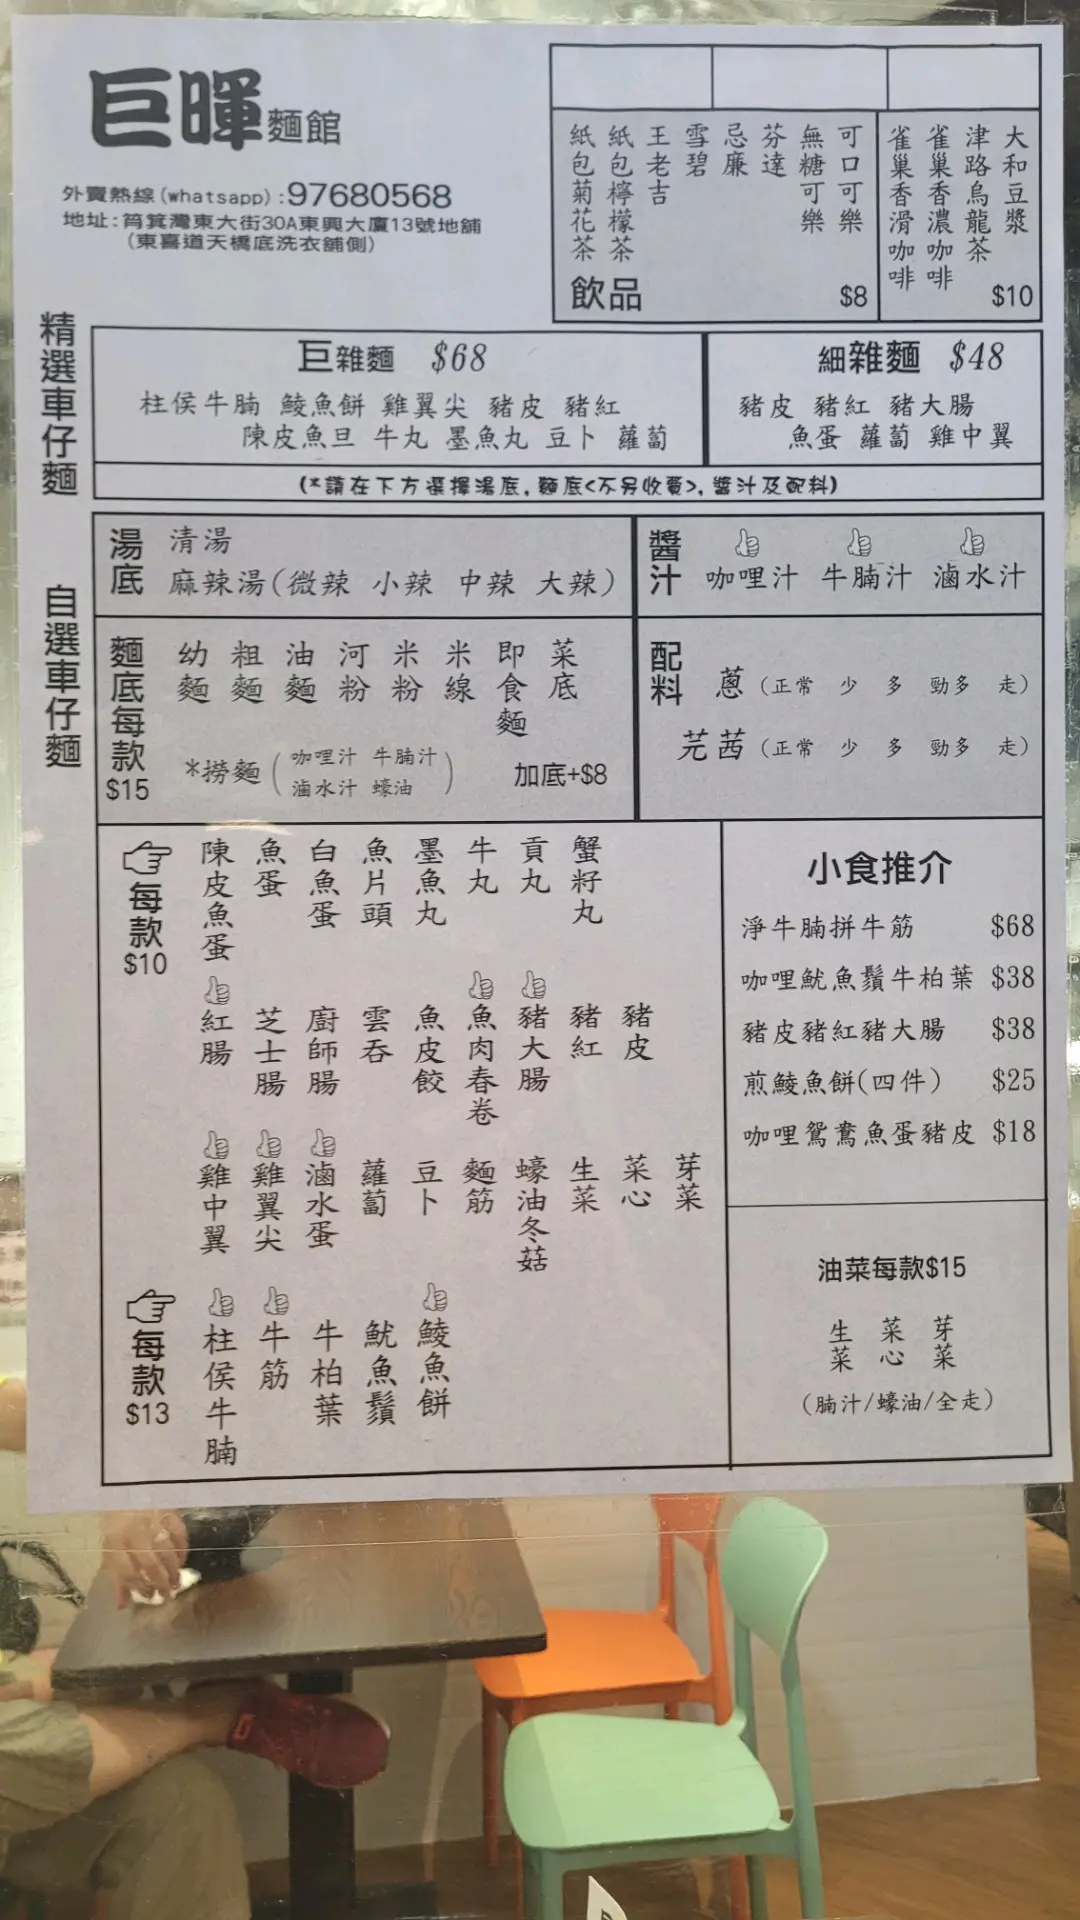 巨暉麵館
外賣熱線(whatsapp):97680568
地址:筲箕灣東大街30A東興大廈13號地舖
(東喜道天橋底洗衣舖側)
紙包菊花茶
紙包檸檬茶
王老吉
雪碧
忌廉
芬達
無糖可樂
可口可樂
飲品 $8
雀巢香滑咖啡
雀巢香濃咖啡
津路烏龍茶
大和豆漿
$10
精選車仔麵
巨雜麵 $68
柱侯牛腩 鯪魚餅 雞翼尖 豬皮 豬紅
陳皮魚旦 牛丸 墨魚丸 豆卜 蘿蔔
細雜麵 $48
豬皮 豬紅 豬大腸
魚蛋 蘿蔔 雞中翼
(*請在下方選擇湯底,麵底<不另收費>,醬汁及配料)
自選車仔麵
湯底
清湯
麻辣湯(微辣 小辣 中辣 大辣)
醬汁
咖哩汁 牛腩汁 滷水汁
麵底每款
$15
幼麵
粗麵
油麵
河粉
米粉
米線
即食麵
菜底
*撈麵(咖哩汁 牛腩汁
滷水汁 蠔油)
加底+$8
配料
蔥(正常 少 多 勁多 走)
芫茜(正常 少 多 勁多 走)
每款
$10
陳皮魚蛋
魚蛋
白魚蛋
魚片頭
墨魚丸
牛丸
貢丸
蟹籽丸
紅腸
芝士腸
廚師腸
雲吞
魚皮餃
魚肉春卷
豬大腸
豬紅
豬皮
雞中翼
雞翼尖
滷水蛋
蘿蔔
豆卜
麵筋
蠔油冬菇
生菜
菜心
芽菜
每款
$13
柱侯牛腩
牛筋
牛柏葉
魷魚鬚
鯪魚餅
小食推介
淨牛腩拼牛筋 $68
咖哩魷魚鬚牛柏葉 $38
豬皮豬紅豬大腸 $38
煎鯪魚餅(四件) $25
咖哩鴛鴦魚蛋豬皮 $18
油菜每款$15
生菜
菜心
芽菜
(腩汁/蠔油/全走)